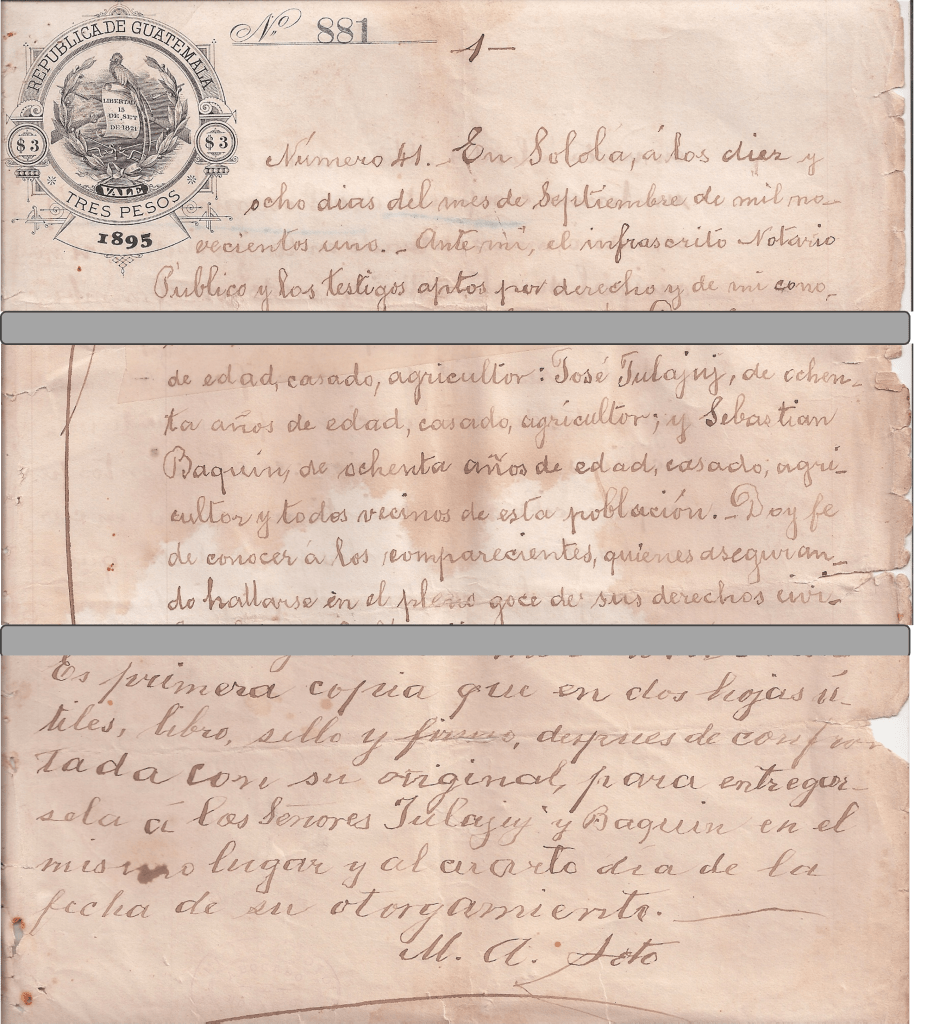 Nº 881
1
REPUBLICA DE GUATEMALA
LIBERTAD
15
DE SET
DE 1821
$3 $3
VALE
TRES PESOS
1895
Número 41. En Sololá, á los diez y
ocho dias del mes de Septiembre de mil no-
vecientos uno. - Ante mi, el infrascrito Notario
Público y los testigos aptos por derecho y de mi cono-
de edad, casado, agricultor: José Tulajuj, de ochen-
ta años de edad, casado, agricultor; y Sebastian
Baquin, de ochenta años de edad, casado, agri-
cultor y todos vecinos de esta población. - Doy fe
de conocer á los comparecientes, quienes aseguran-
do hallarse en el pleno goce de sus derechos civi-
Es primera copia que en dos hojas ú-
tiles, libro, sello y firmo, despues de confron
tada con su original, para entregar-
sela á los Señores Tulajuj y Baquin en el
mismo lugar y al cuarto dia de la
fecha de su otorgamiento.
M. A. Soto